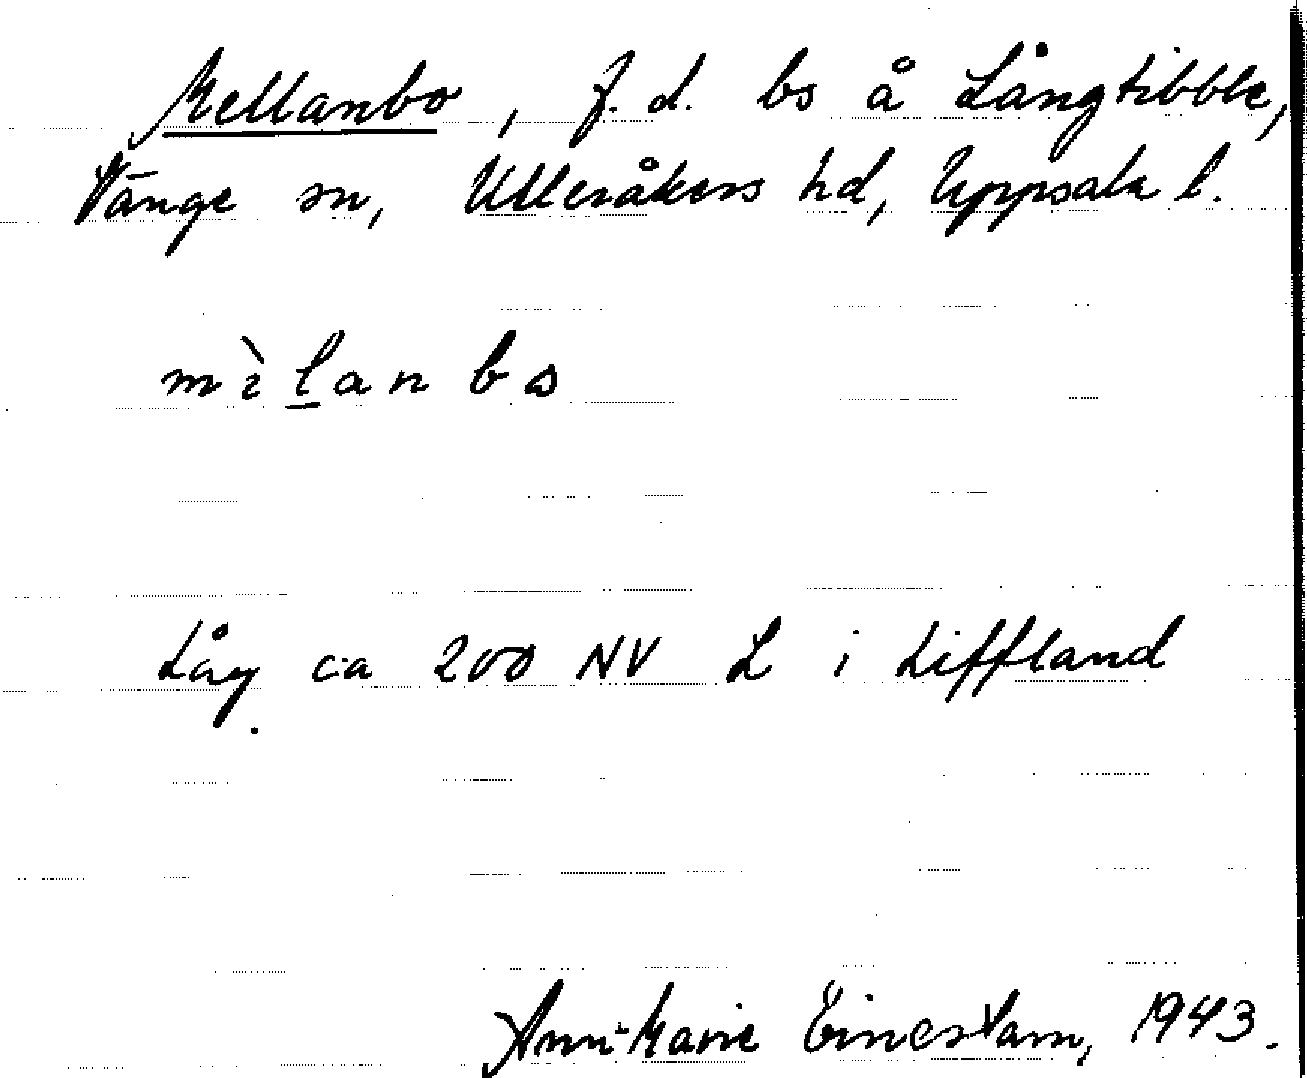 Mellanbo, f. d. bs å Långtibble,
Vänge sn, Ulleråkers hd, Uppsala l.
Låg ca 200 NV L i Liffland
Ann-Marie Einestam, 1943.